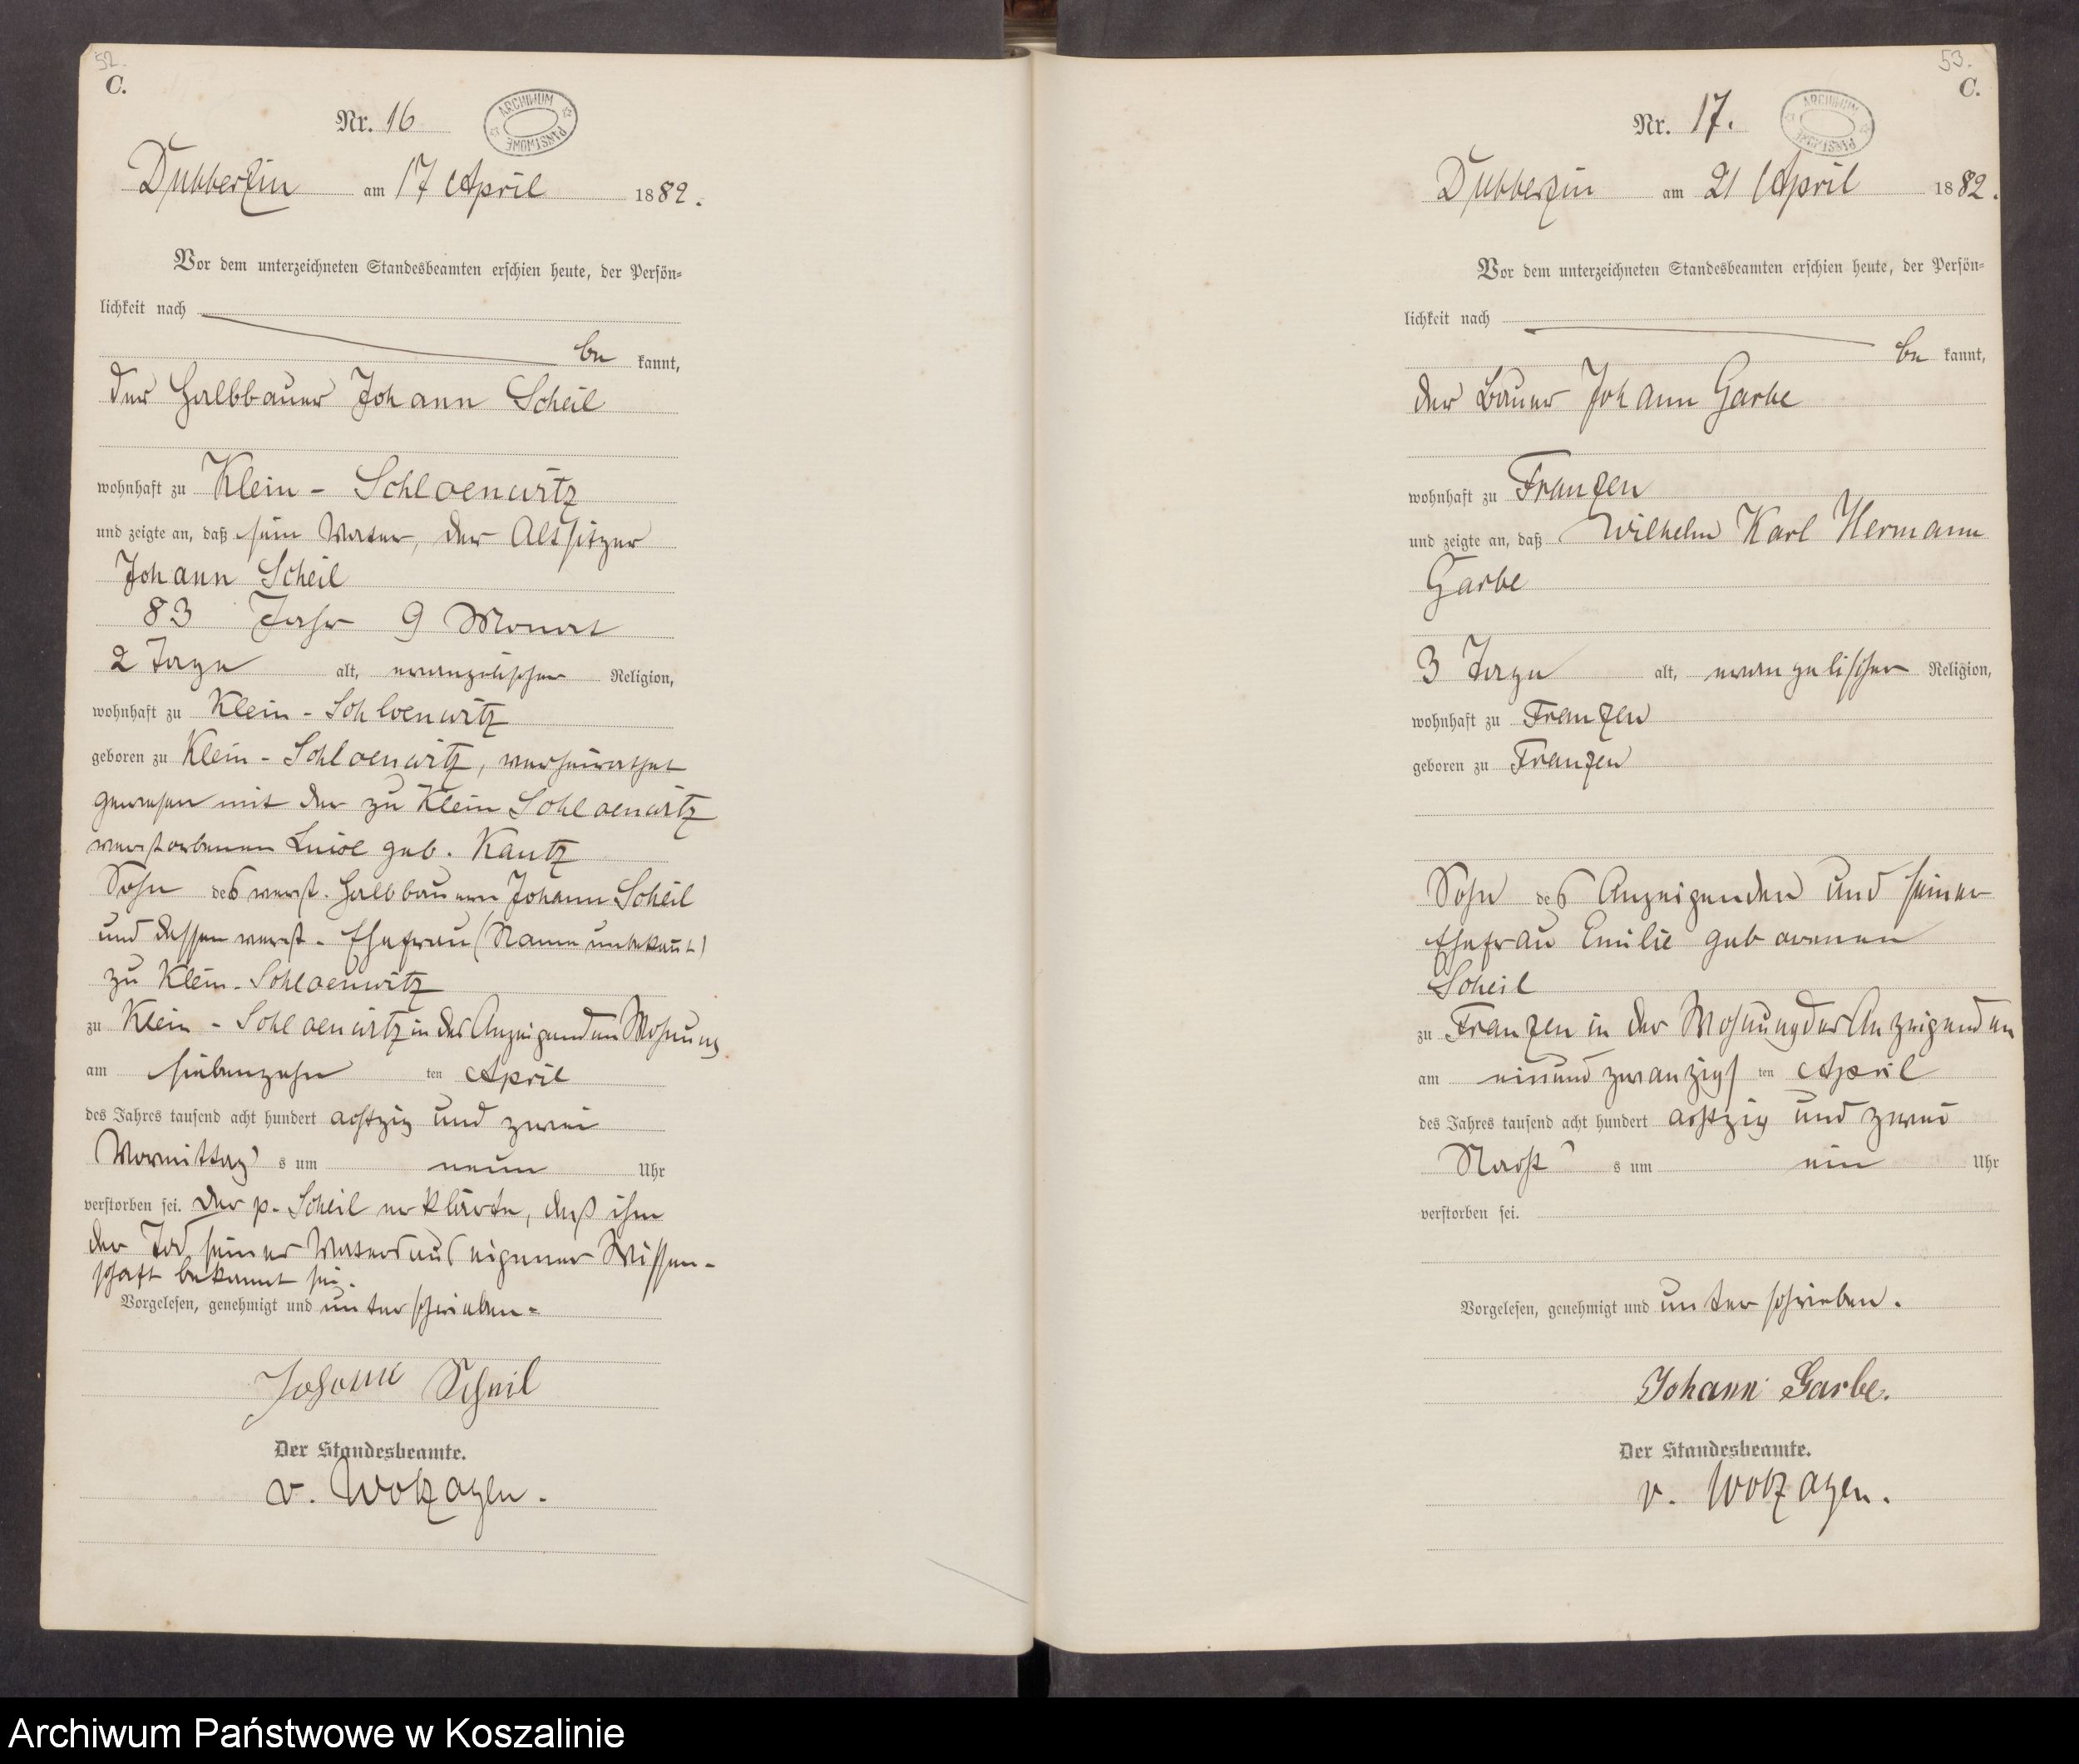 52.
C.
Nr. 16
ARCHIWUM PAŃSTWOWE
Dubberzin am 17 April 1882.
Vor dem unterzeichneten Standesbeamten erschien heute, der Persön-
lichkeit nach
be kannt,
der Halbbauer Johann Scheil
wohnhaft zu Klein - Schloenwitz
und zeigte an, daß sein Vater, der Altsitzer
Johann Scheil
83 Jahr 9 Monat
2 Tage alt, evangelischer Religion,
wohnhaft zu Klein - Schloenwitz
geboren zu Klein - Schloenwitz, verheirathet
gewesen mit der zu Klein Schloenwitz
verstorbenen Luise geb. Kautz
Sohn des verst. Halbbauern Johann Scheil
und dessen verst. Ehefrau (Name unbekannt)
zu Klein - Schloenwitz
zu Klein - Schloenwitz in des Anzeigenden Wohnung
am siebenzehn ten April
des Jahres tausend acht hundert achtzig und zwei
Vormittag s um neun Uhr
verstorben sei. Der p. Scheil erklärte, daß ihm
der Tod seines Vaters aus eigener Wissen-
schaft bekannt sei.
Vorgelesen, genehmigt und unterschrieben =
Johann Scheil
Der Standesbeamte.
v. Wolzogen.
53.
C.
Nr. 17.
ARCHIWUM PAŃSTWOWE
Dubberzin am 21 April 1882.
Vor dem unterzeichneten Standesbeamten erschien heute, der Persön-
lichkeit nach
be kannt,
der Bauer Johann Garbe
wohnhaft zu Franzen
und zeigte an, daß Wilhelm Karl Hermann
Garbe
3 Tage alt, evangelischer Religion,
wohnhaft zu Franzen
geboren zu Franzen
Sohn des Anzeigenden und seiner
Ehefrau Emilie geborenen
Scheil
zu Franzen in der Wohnung des Anzeigenden
am einund zwanzigs ten April
des Jahres tausend acht hundert achtzig und zwei
Nacht s um ein Uhr
verstorben sei.
Vorgelesen, genehmigt und unterschrieben.
Johann Garbe.
Der Standesbeamte.
v. Wolzogen.
Archiwum Państwowe w Koszalinie